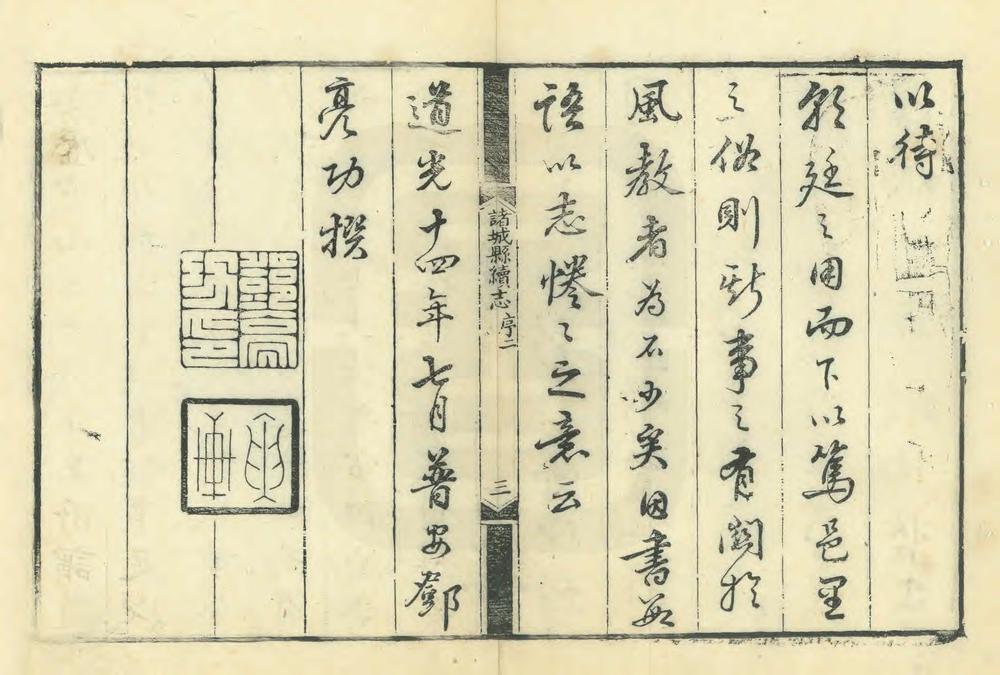 以待
朝廷之用而下以篤邑里
之俗則斯事之有關於
風教者為不少矣因書數
語以志惓之之意云
諸城縣續志 序二
三
道光十四年七月普安鄧
亮功撰
鄧亮功印